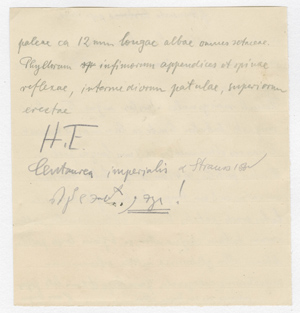 paleae ca 12 mm longae albae omnes setaceae.
Phyllorum infimorum appendices et spinae
reflexae, intermediorum patulae, superiorum
erectae
H.E.
Centaurea imperialis
!